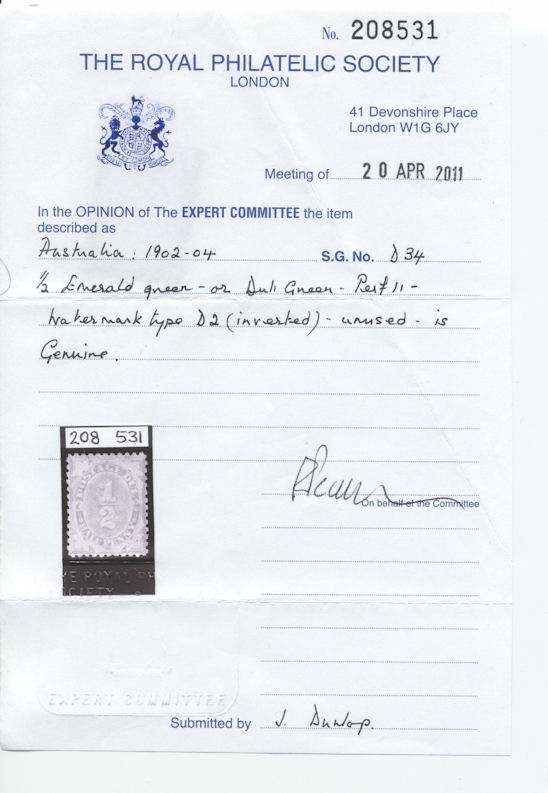 No. 208531
THE ROYAL PHILATELIC SOCIETY
LONDON
41 Devonshire Place
London W1G 6JY
Meeting of 20 APR 2011
In the OPINION of The EXPERT COMMITTEE the item
described as
Australia: 1902-04 S.G. No. D34
½ Emerald green - or Dull Green - Perf 11 -
Watermark type D2 (inverted) - unused - is
Genuine.
208 531
POSTAGE DUE
1/2
HALF PENNY
HE ROYAL PH
SOCIETY
On behalf of the Committee
EXPERT COMMITTEE
Submitted by J. Dunlop.